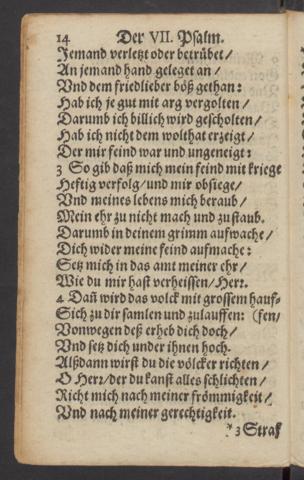 14 Der VII. Psalm.
Jemand verletzt oder betrübet /
An jemand hand geleget an /
Vnd dem friedlieber böß gethan:
Hab ich je gut mit arg vergolten /
Darumb ich billich wird gescholten /
Hab ich nicht dem wolthat erzeigt /
Der mir feind war und ungeneigt:
3 So gib daß mich mein feind mit kriege
Hefftig verfolg / und mir obsiege /
Vnd meines lebens mich beraub /
Mein ehr zu nicht mach und zu staub.
Darumb in deinem grimm aufwache /
Dich wider meine feind aufmache:
Setz mich in das amt meiner ehr /
Wie du mir hast verheissen / Herr.
4 Dañ wird das volck mit grossem hauf-
Sich zu dir samlen und zulauffen: (fen /
Vonwegen deß erheb dich doch /
Vnd setz dich under ihnen hoch.
Alßdann wirst du die völcker richten /
O Herr / der du kanst alles schlichten /
Richt mich nach meiner frömmigkeit /
Vnd nach meiner gerechtigkeit.
* 3 Straf